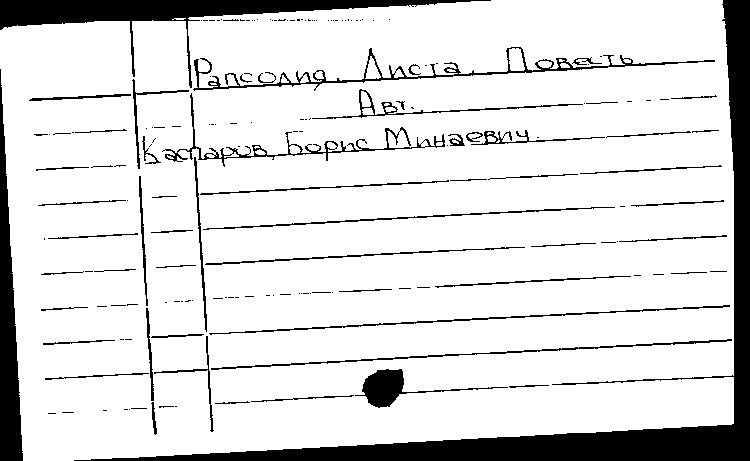 Рапсодия Листа. Повесть.
Авт.
Каспаров, Борис Минаевич.